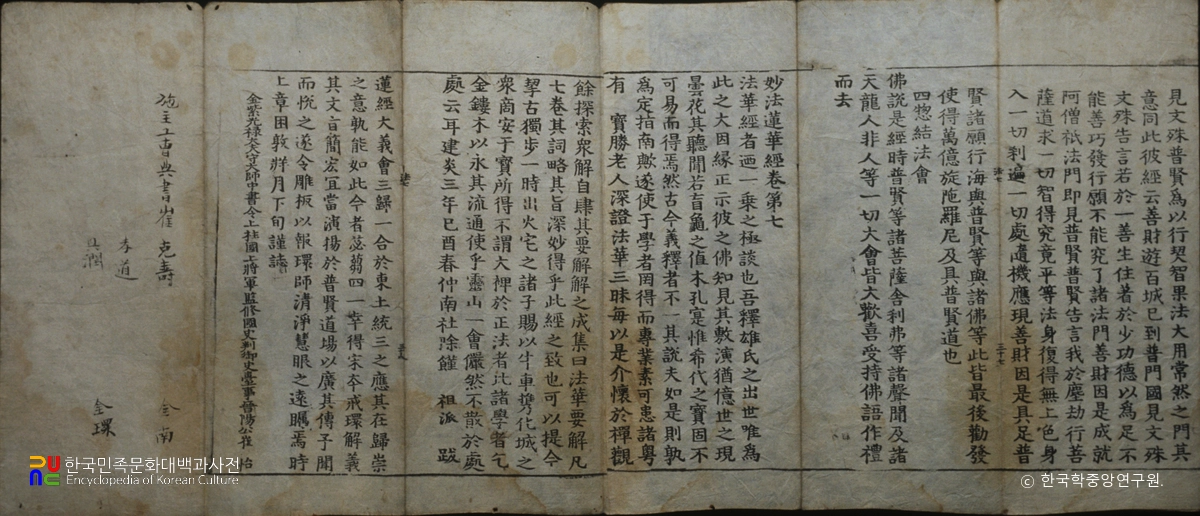 見文殊普賢為以行契智果法大用常然之門其
意同此彼經云善財遊百城已到普門國見文殊
文殊告言若於一善生住著於少功德以為足不
能善巧發行願不能究了諸法門善財因是成就
阿僧祇法門即見普賢普賢告言我於塵劫行菩
薩道求一切智得究竟平等法身復得無上色身
入一切剎遍一切處隨機應現善財因是具足普
賢諸願行海與普賢等與諸佛等此皆最後勸發
使得萬億旋陁羅尼及具普賢道也
四惣結法會
佛說是經時普賢等諸菩薩舍利弗等諸聲聞及諸
天龍人非人等一切大會皆大歡喜受持佛語作禮
而去
妙法蓮華經卷第七
法華經者迺一乘之極談也吾釋雄氏之出世唯為
此之大因緣正示彼之佛知見其敷演猶億世之現
曇花其聽聞若盲龜之值木孔寔惟希代之寶固不
可易而得焉然古今義釋者不一其說夫如是則孰
為定指南歟遂使于學者罔得而專業素可患諸粤
有 寶勝老人深證法華三昧每以是介懷於禪觀
餘探索衆解自肆其要解解之成集曰法華要解凡
七卷其詞略其旨深妙得乎此經之致也可以提今
挈古獨步一時出火宅之諸子賜以牛車携化城之
衆商安于寶所得不謂大裨於正法者比諸學者乞
金鏤木以永其流通使乎靈山一會儼然不散於處
處云耳建炎三年己酉春仲南社除饉 祖派 跋
蓮經大義會三歸一合於東土統三之應其在歸崇
之意孰能如此今者苾蒭四一幸得宋本戒環解義
其文言簡宏宜當演揚於普賢道場以廣其傳予聞
而悅之遂令雕板以報環師清淨慧眼之遠矚焉時
上章困敦牂月下旬謹誌
金紫光祿大夫守太師中書令上柱國上將軍監修國史判御史臺事晉陽公崔 怡
施主工曹典書崔 克壽 金 南
李 道
吳 潤 金 㻶
한국민족문화대백과사전
Encyclopedia of Korean Culture
© 한국학중앙연구원.